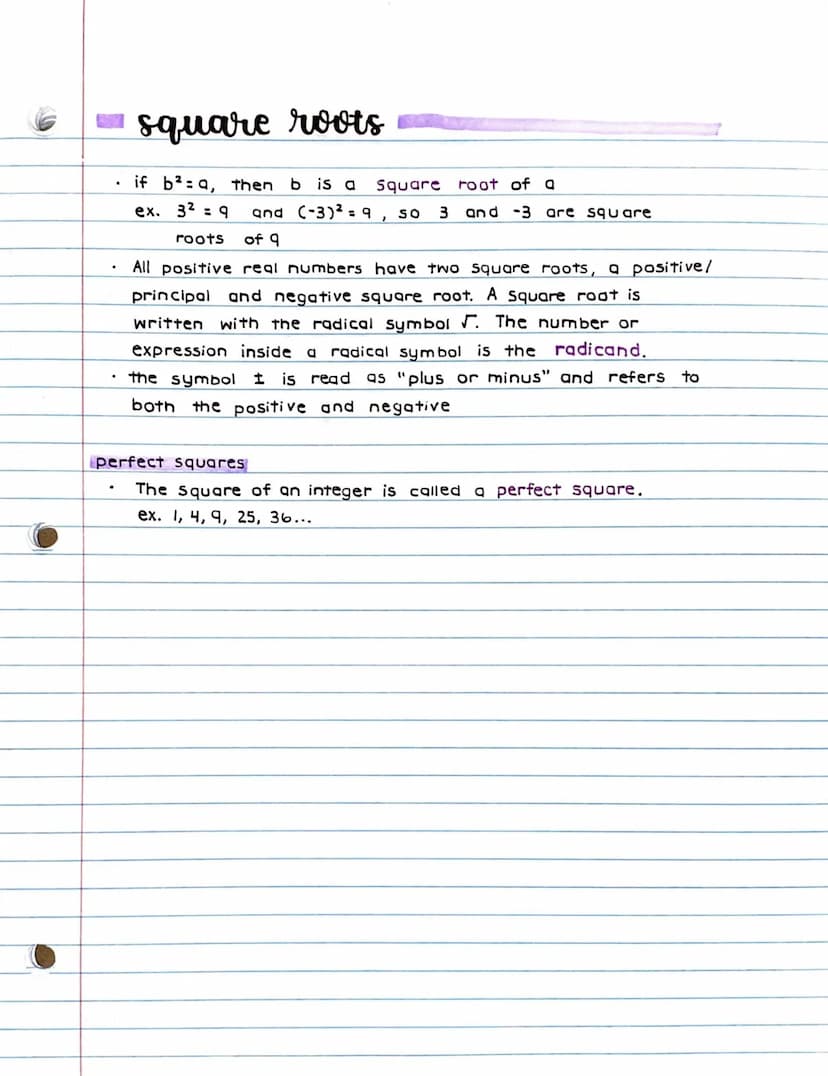 square roots
· if b²=a, then b is a square root of a
ex. 3² = 9 and (-3)² = 9, so 3 and -3 are square
roots of 9
· All positive real numbers have two square roots, a positive/
principal and negative square root. A square root is
written with the radical symbol √. The number or
expression inside a radical symbol is the radicand.
· the symbol ± is read as "plus or minus" and refers to
both the positive and negative
perfect squares
· The square of an integer is called a perfect square.
ex. 1, 4, 9, 25, 36...